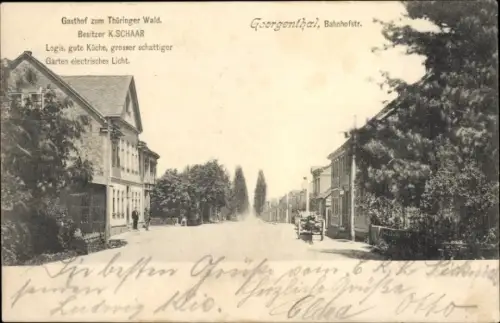 Gasthof zum Thüringer Wald.
Besitzer K.SCHAAR
Logis, gute Küche, grosser schattiger
Garten electrisches Licht.
Georgenthal, Bahnhofstr.
Die besten Grüße
senden
Herzliche Grüße
Ludwig
Otto